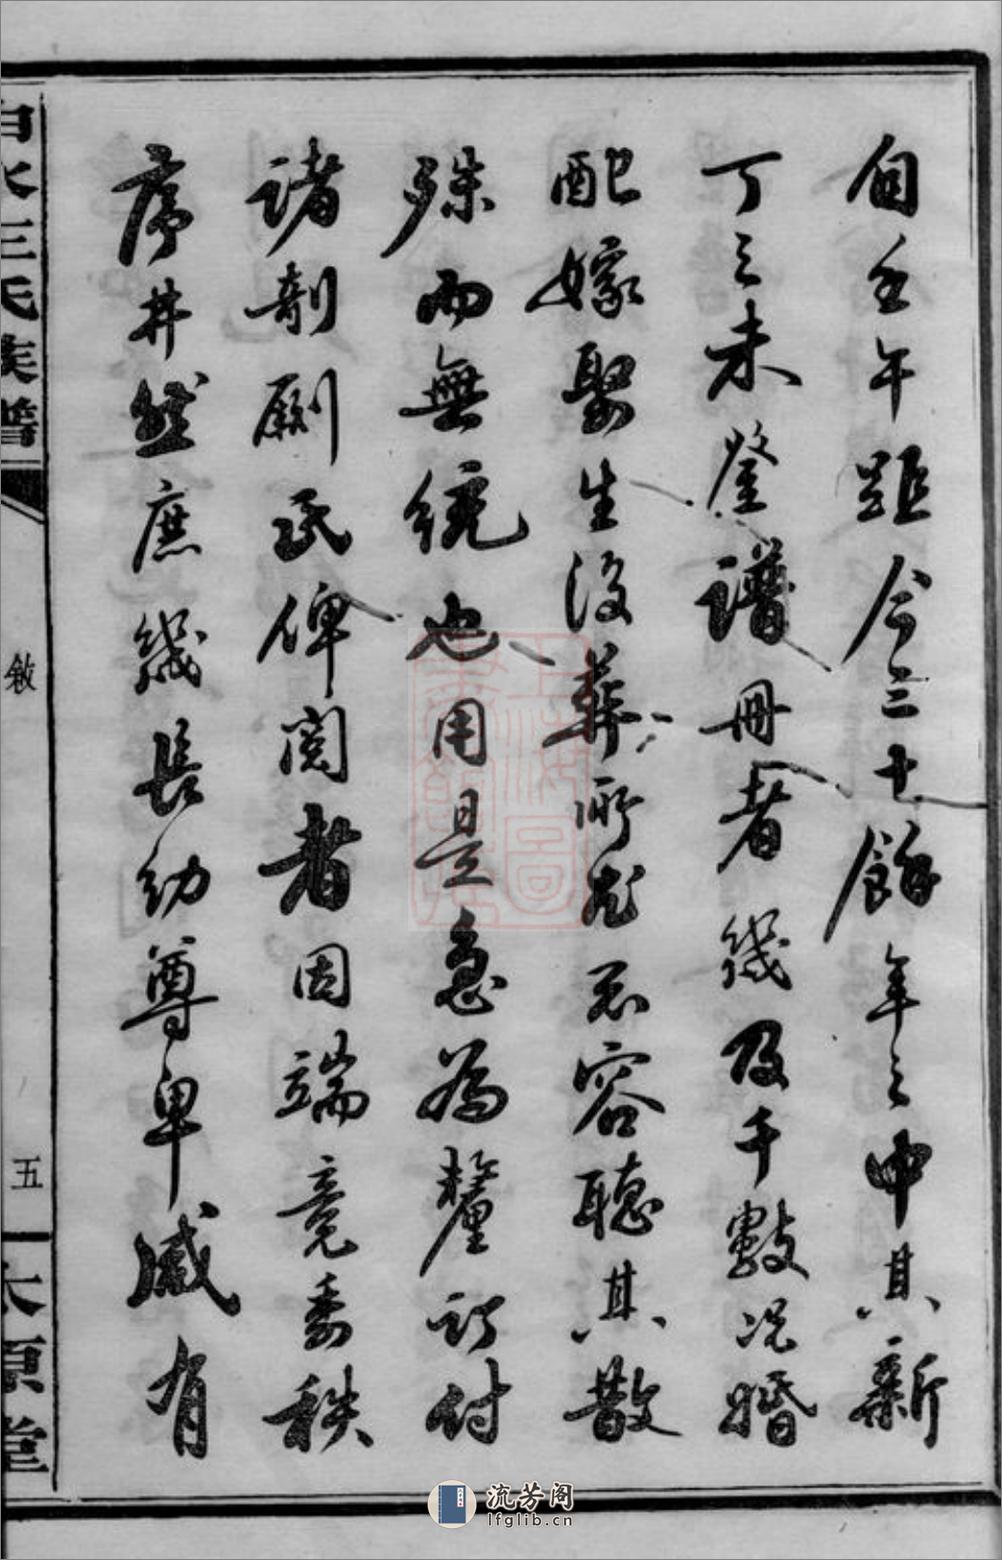 自壬午距今三十餘年之中其新
丁之未登譜冊者幾及千數況婚
配嫁娶生沒葬所尤不容聽其散
殊而無統也用是急為釐訂付
諸剞劂氏俾閱者因端竟委秩
序井然庶幾長幼尊卑咸有
白水王氏族譜
敘
五
太原堂
流芳阁
lfglib.cn